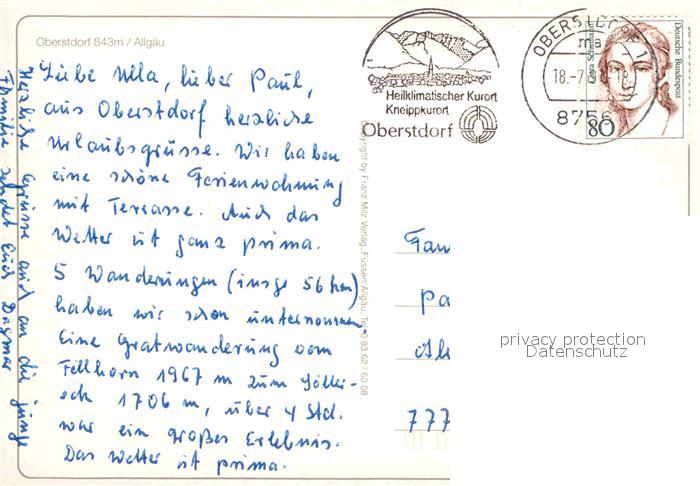 Oberstdorf 843m / Allgäu
Liebe Ulla, lieber Paul,
aus Oberstdorf herzliche
Urlaubsgrüsse. Wir haben
eine schöne Ferienwohnung
mit Terrasse. Auch das
Wetter ist ganz prima.
5 Wanderungen (insge 56 km)
haben wir schon unternommen.
Eine Gratwanderung vom
Fellhorn 1967 m zum Söller-
eck 1706 m, über 4 Std.
war ein großes Erlebnis.
Das Wetter ist prima.
Herzliche Grüsse auch an die junge
Familie sendet Euch Dagmar
Copyright by Franz Milz Verlag, Füssen/Allgäu, Tel. 0 83 62 / 60 08
Heilklimatischer Kurort
Kneippkurort
Oberstdorf
OBERSTDORF
ma
18.-7.
18
8756
Deutsche Bundespost
80
Fam
Pa
777
privacy protection
Datenschutz